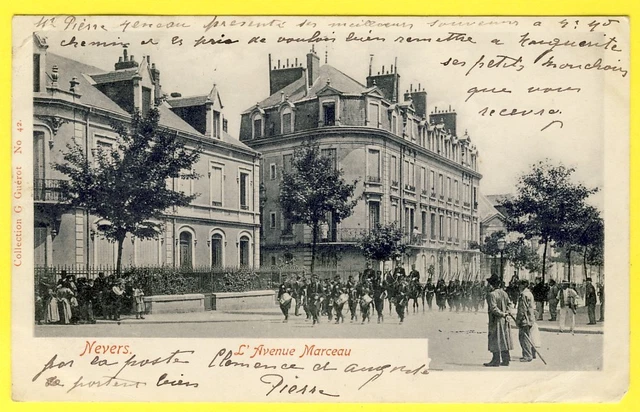 Mr Pierre Geneau presente ses meilleurs souvenirs a Mr
chemin et les prie de vouloir bien remettre a Marguerite
ses petits mouchoirs
que vous
recevra
Collection G Guérot No 42.
Nevers. L'Avenue Marceau
par la poste Clemence et
se portent bien Pierre